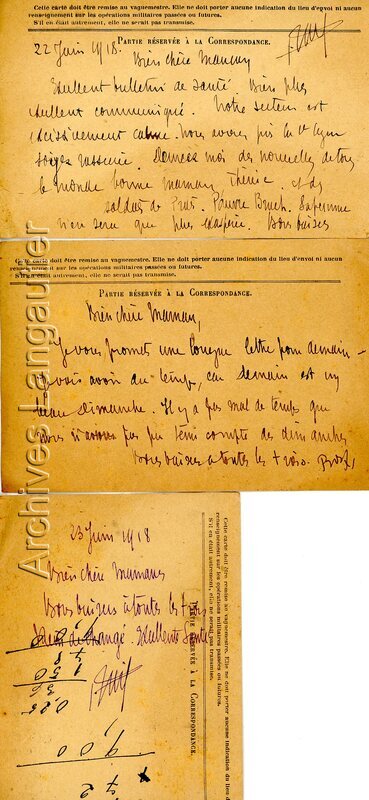 Cette carte doit être remise au vaguemestre. Elle ne doit porter aucune indication du lieu d'envoi ni aucun
renseignement sur les opérations militaires passées ou futures.
S'il en était autrement, elle ne serait pas transmise.
PARTIE RÉSERVÉE À LA CORRESPONDANCE.
22 Juin 1918.
Bien chère Maman
Excellent bulletin de santé. Bien plus
excellent communiqué. Notre secteur est
excessivement calme. Nous avons pris la
soyez rassurée. Donnez moi des nouvelles de tous
le monde bonne Maman, et des
soldats de Pauvre
n'en sera que plus Bons baisers
Cette carte doit être remise au vaguemestre. Elle ne doit porter aucune indication du lieu d'envoi ni aucun
renseignement sur les opérations militaires passées ou futures.
S'il en était autrement, elle ne serait pas transmise.
PARTIE RÉSERVÉE À LA CORRESPONDANCE.
Bien chère Maman,
Je vous promets une longue lettre pour demain –
je vais avoir du temps, car demain est un
beau Dimanche. Il y a pas mal de temps que
nous n'avons pas pu tenir compte des dimanches
Bons baisers à toutes les trois.
Cette carte doit être remise au vaguemestre. Elle ne doit porter aucune indication du lieu d'envoi ni aucun
renseignement sur les opérations militaires passées ou futures.
S'il en était autrement, elle ne serait pas transmise.
PARTIE RÉSERVÉE À LA CORRESPONDANCE.
23 Juin 1918
Bien chère Maman
Bons baisers à toutes les trois
changé. Excellente santé
0,85
9,00
72
Archives Langautier